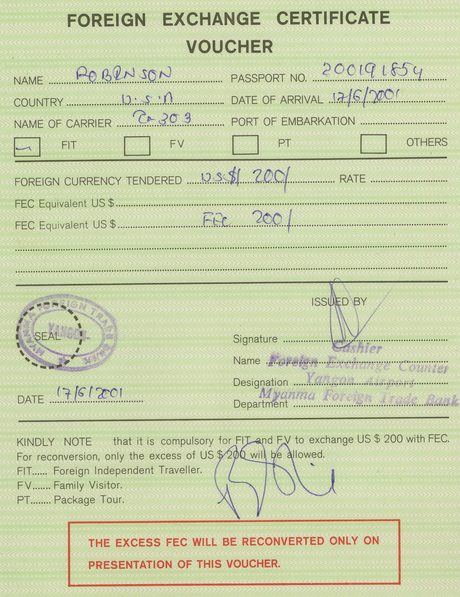 FOREIGN EXCHANGE CERTIFICATE
VOUCHER
NAME ROBINSON PASSPORT NO. 200191854
COUNTRY U.S.A DATE OF ARRIVAL 17/6/2001
NAME OF CARRIER 303 PORT OF EMBARKATION
FIT FV PT OTHERS
FOREIGN CURRENCY TENDERED US$/ 200/ RATE
FEC Equivalent US $
FEC Equivalent US $ FEC 200/
ISSUED BY
MYANMA FOREIGN TRADE BANK
SEAL YANGON
Signature
Cashier
Name Foreign Exchange Counter
Designation Yangon Airport
DATE 17/6/2001
Department Myanma Foreign Trade Bank
KINDLY NOTE that it is compulsory for FIT and FV to exchange US $ 200 with FEC.
For reconversion, only the excess of US $ 200 will be allowed.
FIT...... Foreign Independent Traveller.
FV....... Family Visitor.
PT........ Package Tour.
THE EXCESS FEC WILL BE RECONVERTED ONLY ON
PRESENTATION OF THIS VOUCHER.